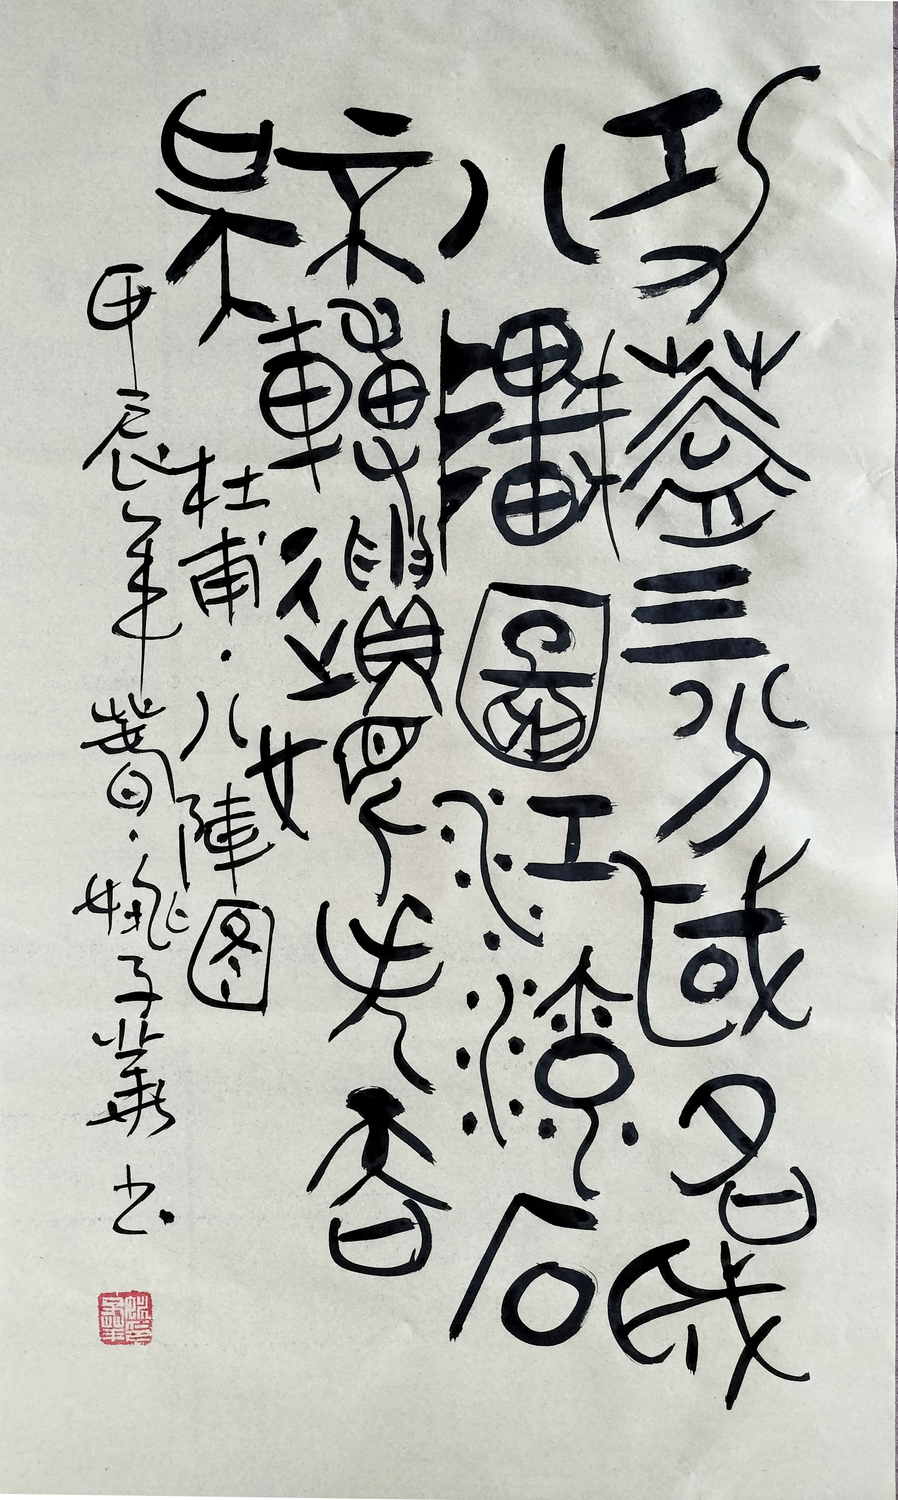 功蓋三分國名成
八陣圖江流石
不轉遺恨失吞
吳
杜甫·八陣图
甲辰年春·姚子華书